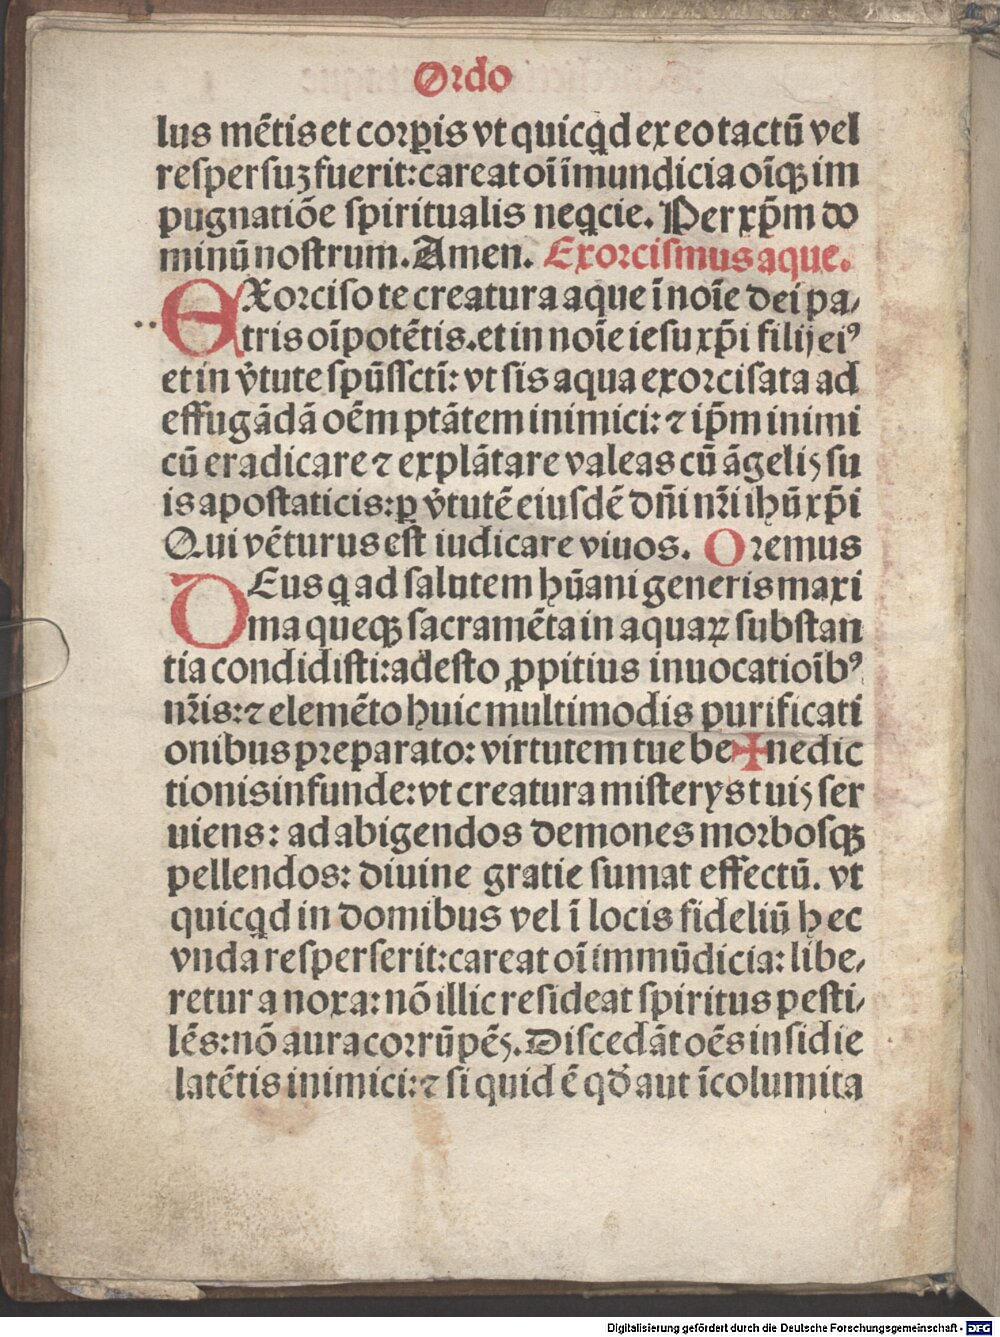 Ordo
lus mētis et corꝑis vt quicq̇d ex eo tactū vel
respersuꝫ fuerit: careat oī īmundicia oīqꝫ im
pugnatiōe spiritualis neq̇cie. Per xp̄m do
minū nostrum. Amen. Exorcismus aque.
EXorciso te creatura aque ī noīe dei pa⸗
tris oīpotētis. et in noīe iesu xp̄i filij eiꝰ
et in v̄tute spūssctī: vt sis aqua exorcisata ad
effugādā oēm ptātem inimici: ⁊ ip̄m inimi
cū eradicare ⁊ explātare valeas cū āgelis su
is apostaticis: ꝑ v̄tutē eiusdē dn̄i nr̄i ihū xp̄i
Qui vēturus est iudicare viuos. Oremus
DEus q̇ ad salutem hūani generis maxi
ma queqꝫ sacramēta in aquaꝝ substan
tia condidisti: adesto ꝓpitius inuocatioībꝰ
nr̄is: ⁊ elemēto huic multimodis purificati
onibus preparato: virtutem tue be✠nedic
tionis infunde: vt creatura misterys tuis ser
uiens: ad abigendos demones morbosqꝫ
pellendos: diuine gratie sumat effectū. vt
quicq̇d in domibus vel ī locis fideliū hec
vnda resperserit: careat oī immūdicia: libe⸗
retur a noxa: nō illic resideat spiritus pesti⸗
lēs: nō aura corrūpēs. Discedāt oēs insidie
latētis inimici: ⁊ si quid ē qđ aut īcolumita
Digitalisierung gefördert durch die Deutsche Forschungsgemeinschaft - DFG